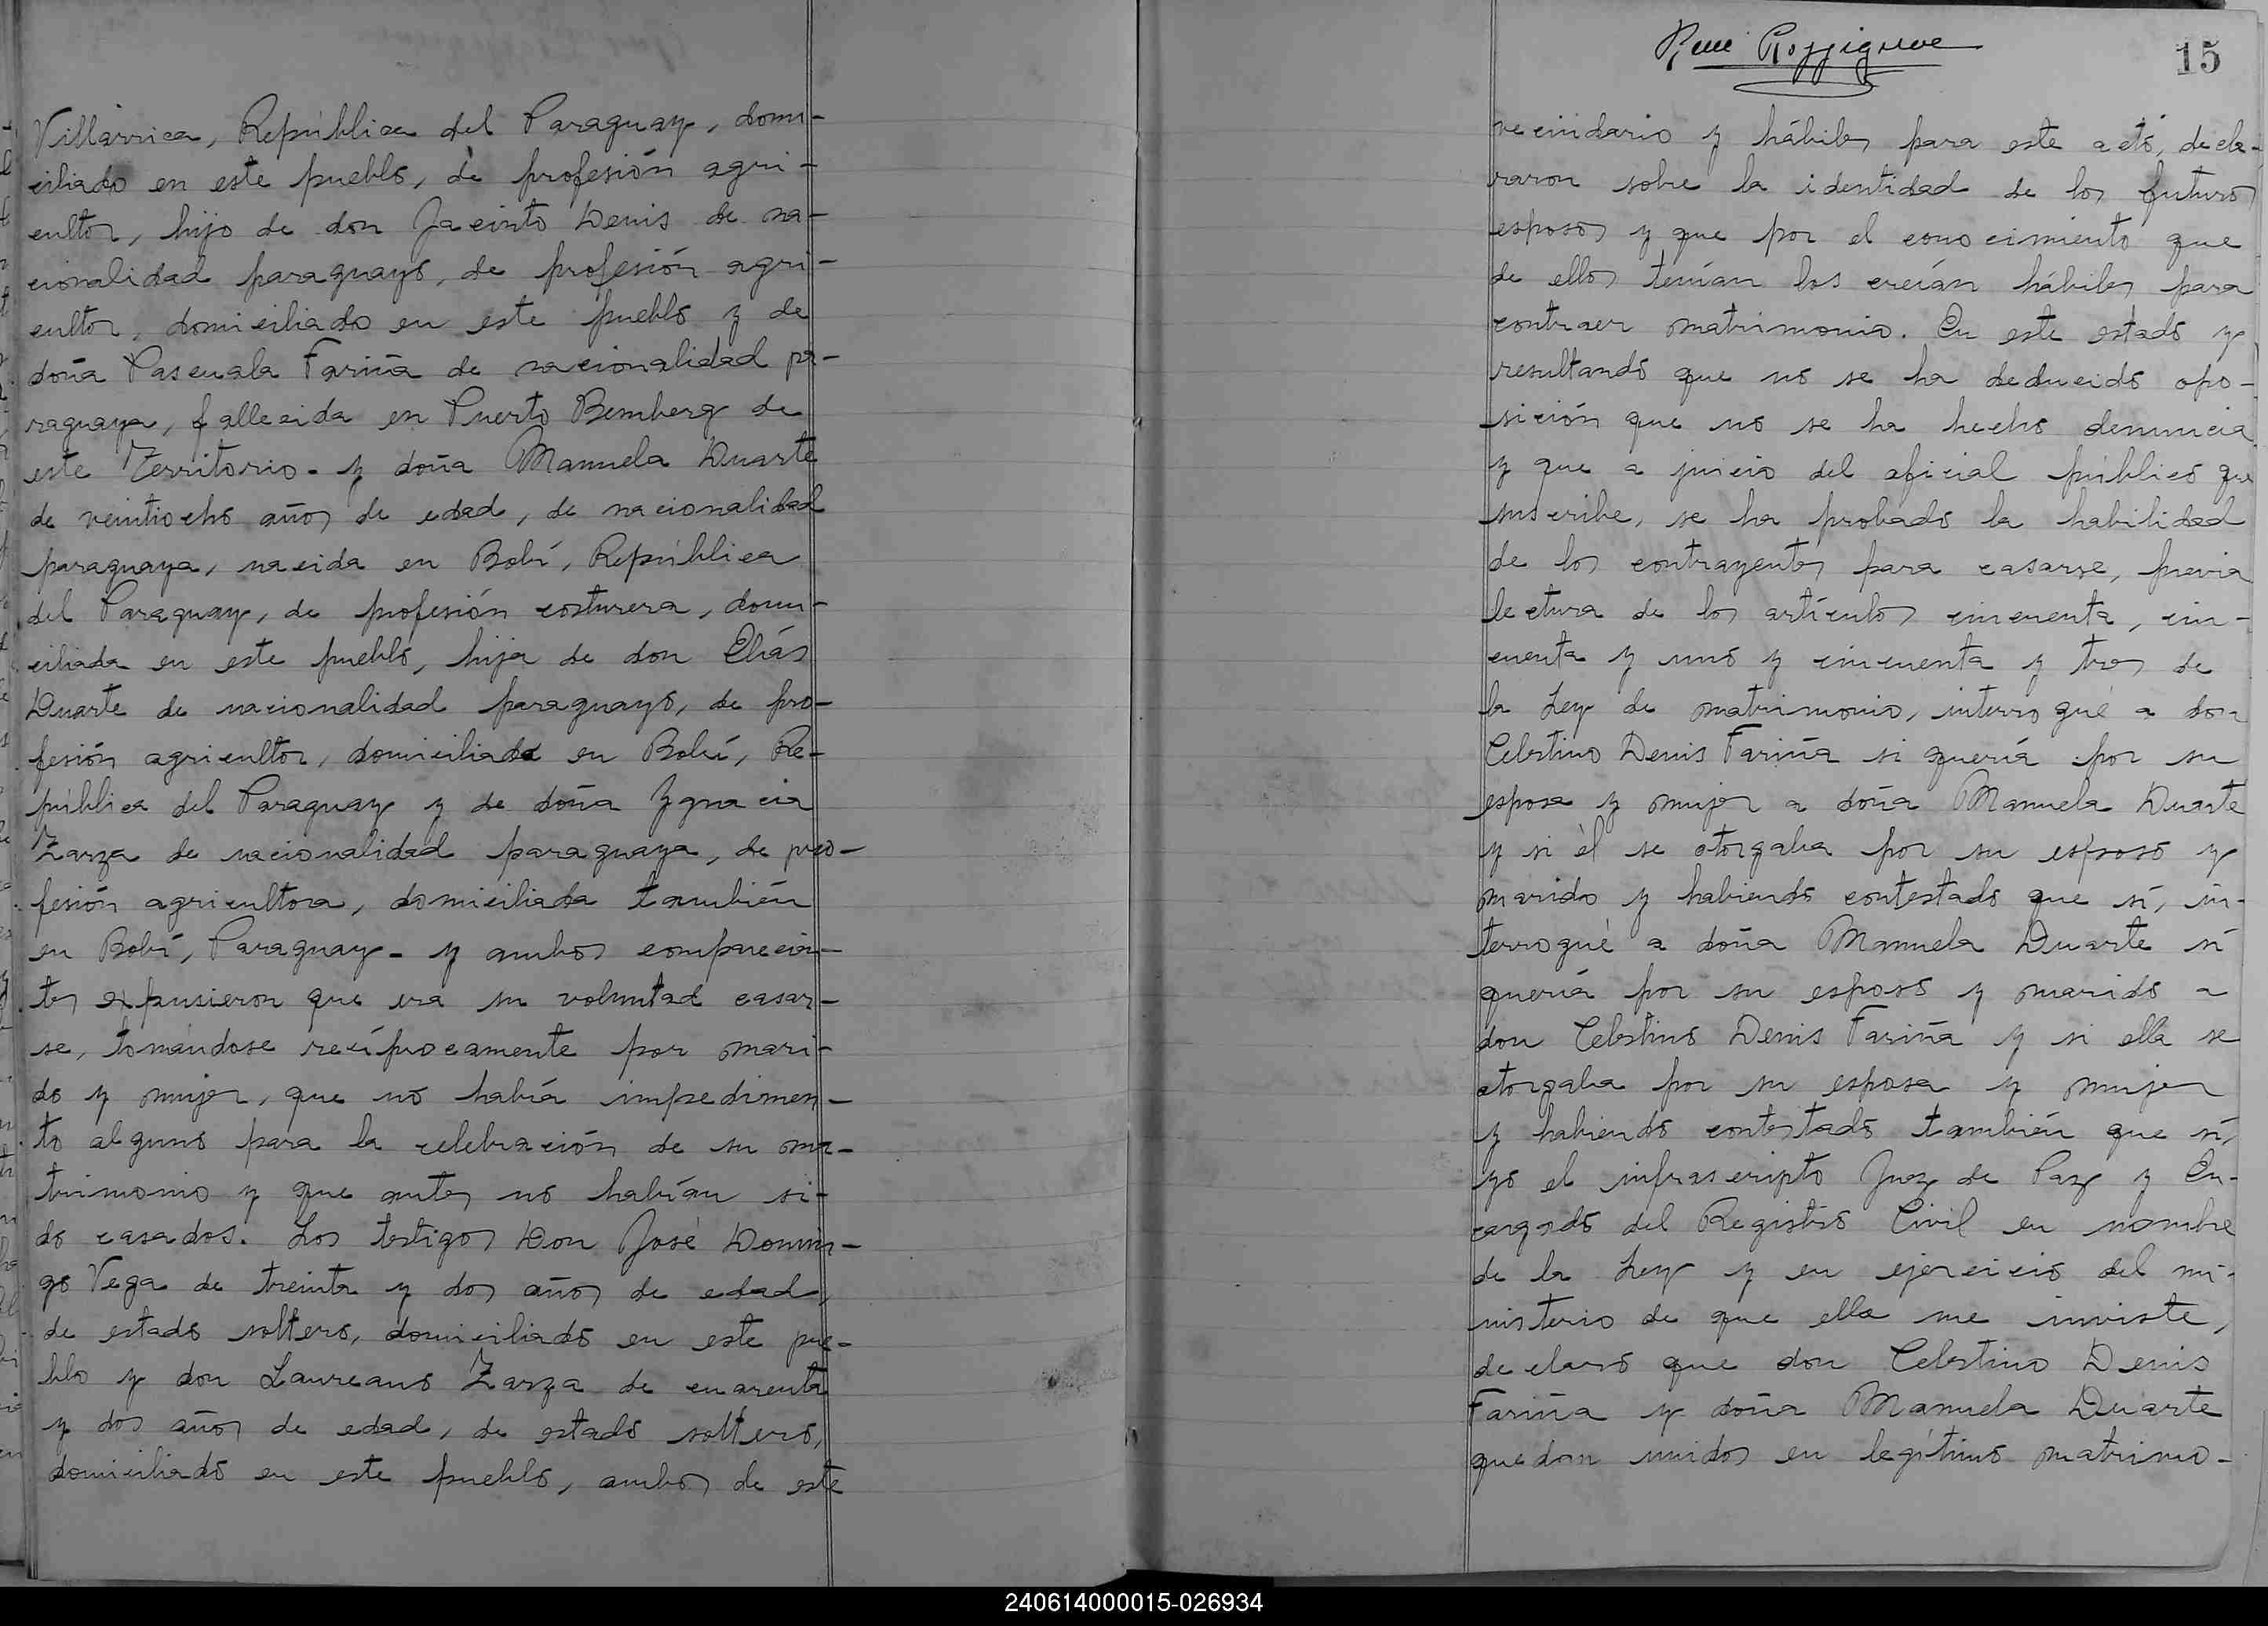 Villarrica, República del Paraguay, domi-
ciliado en este pueblo, de profesión agri-
cultor, hijo de don Jacinto Denis de na-
cionalidad paraguayo, de profesión agri-
cultor, domiciliado en este pueblo y de
doña Pascuala Fariña de nacionalidad pa-
raguaya, fallecida en Puerto Bemberg de
este Territorio - y doña Manuela Duarte
de veintiocho años de edad, de nacionalidad
paraguaya, nacida en Bobí, República
del Paraguay, de profesión costurera, domi-
ciliada en este pueblo, hija de don Elías
Duarte de nacionalidad paraguayo, de pro-
fesión agricultor, domiciliado en Bobí, Re-
pública del Paraguay y de doña Ygnacia
Zarza de nacionalidad paraguaya, de pro-
fesión agricultora, domiciliada también
en Bobí, Paraguay - y ambos comprecien-
tes expusieron que era su voluntad casar-
se, tomándose recíprocamente por mari-
do y mujer, que no había impedimen-
to alguno para la celebración de su ma-
trimonio y que antes no habían si-
do casados. Los testigos Don José Domin-
go Vega de treinta y dos años de edad,
de estado soltero, domiciliado en este pue-
blo y don Laureano Zarza de cuarenta
y dos años de edad, de estado soltero,
domiciliado en este pueblo, ambos de este
15
vecindario y hábiles para este acto, decla-
raron sobre la identidad de los futuros
esposos y que por el conocimiento que
de ellos tenían los creían hábiles para
contraer matrimonio. En este estado y
resultando que no se ha deducido opo-
sición que no se ha hecho denuncia
y que a juicio del oficial público que
suscribe, se ha probado la habilidad
de los contrayentes para casarse, previa
lectura de los artículos cincuenta, cin-
cuenta y uno y cincuenta y tres de
la Ley de matrimonio, interrogué a don
Celestino Denis Fariña si quería por su
esposa y mujer a doña Manuela Duarte
y si él se otorgaba por su esposo y
marido y habiendo contestado que sí, in-
terrogué a doña Manuela Duarte si
quería por su esposo y marido a
don Celestino Denis Fariña y si ella se
otorgaba por su esposa y mujer
y habiendo contestado también que sí,
yo el infrascripto Juez de Paz y En-
cargado del Registro Civil en nombre
de la Ley y en ejercicio del mi-
nisterio de que ella me inviste,
declaro que don Celestino Denis
Fariña y doña Manuela Duarte
quedan unidos en legítimo matrimo-
240614000015-026934